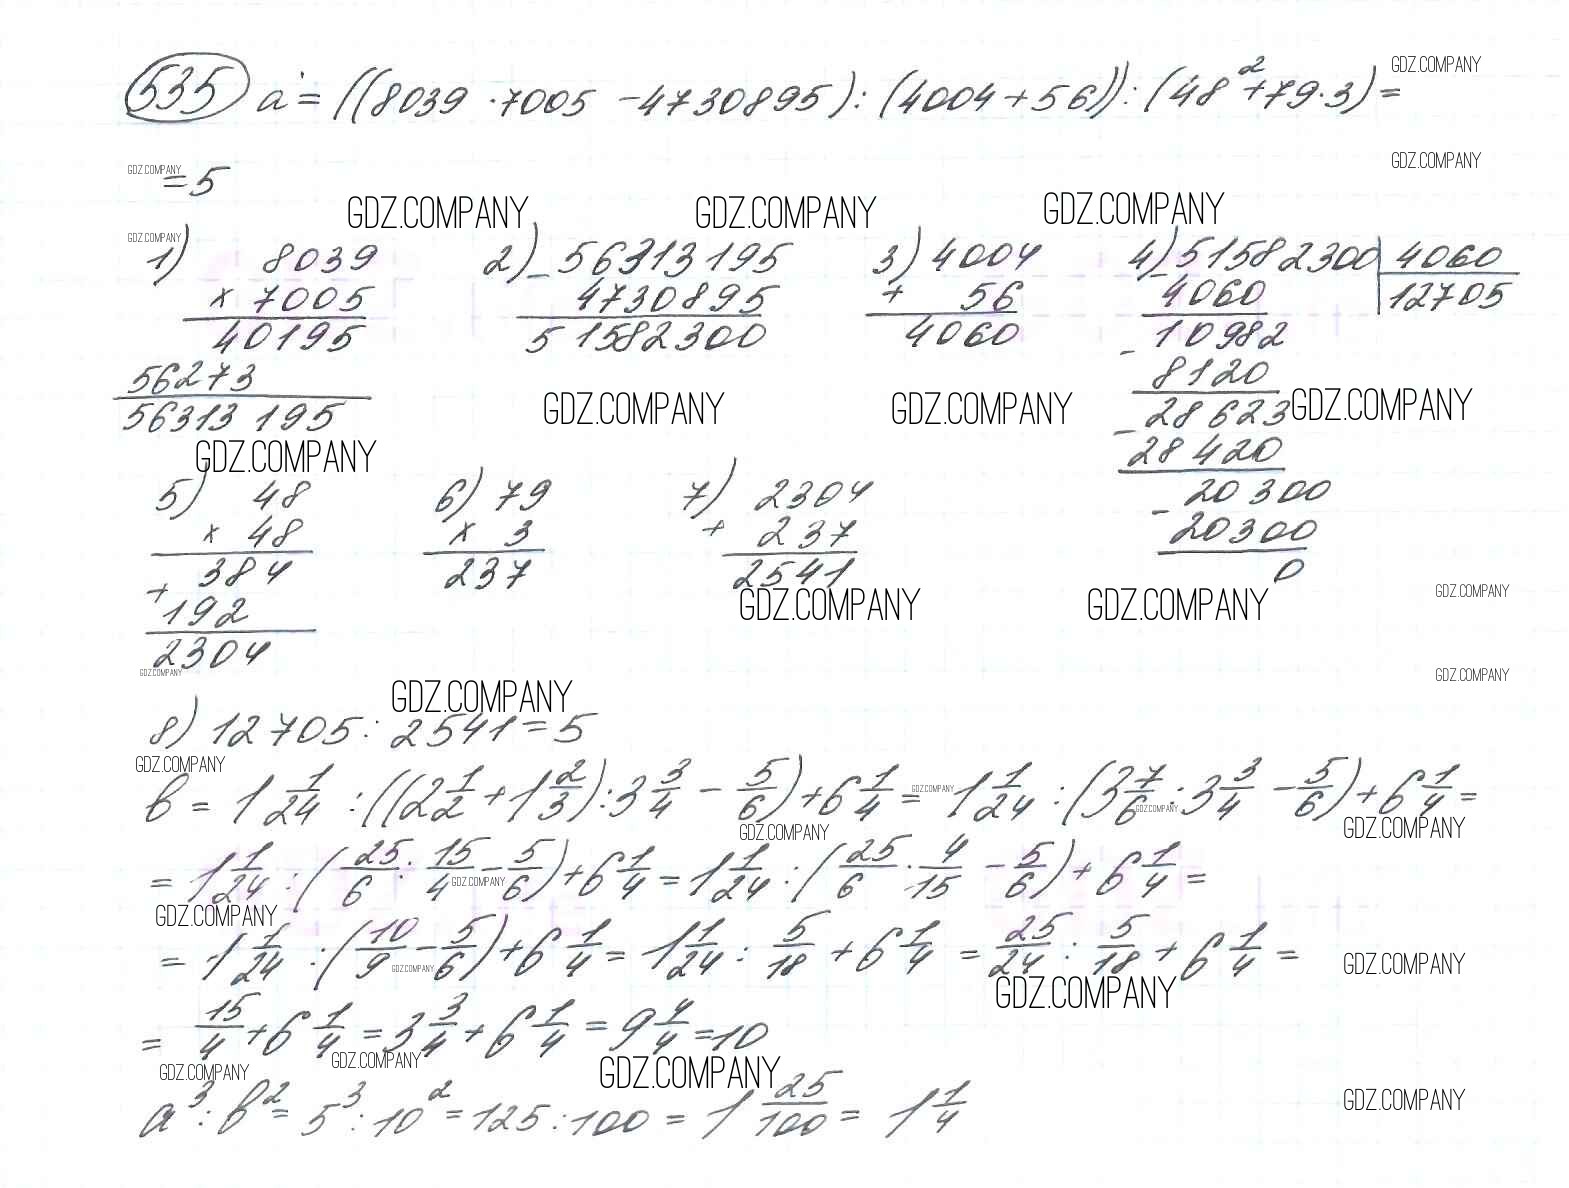 535 a = ((8039 · 7005 - 4730895) : (4004 + 56)) : (48² + 79 · 3) =
GDZ.COMPANY
= 5
GDZ.COMPANY
GDZ.COMPANY
GDZ.COMPANY GDZ.COMPANY GDZ.COMPANY
GDZ.COMPANY
1) 8039
× 7005
40195
56273
56313195
2) - 56313195
4730895
51582300
3) 4004
+ 56
4060
4) 51582300 | 4060
- 4060 | 12705
10982
- 8120
28623
- 28420
20300
- 20300
0
GDZ.COMPANY GDZ.COMPANY GDZ.COMPANY
GDZ.COMPANY
5) 48
× 48
384
+ 192
2304
6) 79
× 3
237
7) 2304
+ 237
2541
GDZ.COMPANY GDZ.COMPANY GDZ.COMPANY
GDZ.COMPANY GDZ.COMPANY
GDZ.COMPANY
8) 12705 : 2541 = 5
GDZ.COMPANY
b = 1 1/24 : ((2 1/2 + 1 2/3) : 3 3/4 - 5/6) + 6 1/4 = 1 1/24 : (3 7/6 : 3 3/4 - 5/6) + 6 1/4 =
GDZ.COMPANY GDZ.COMPANY GDZ.COMPANY GDZ.COMPANY
= 1 1/24 : (25/6 : 15/4 - 5/6) + 6 1/4 = 1 1/24 : (25/6 · 4/15 - 5/6) + 6 1/4 =
GDZ.COMPANY GDZ.COMPANY
= 1 1/24 : (10/9 - 5/6) + 6 1/4 = 1 1/24 : 5/18 + 6 1/4 = 25/24 : 5/18 + 6 1/4 =
GDZ.COMPANY GDZ.COMPANY GDZ.COMPANY
= 15/4 + 6 1/4 = 3 3/4 + 6 1/4 = 9 4/4 = 10
GDZ.COMPANY GDZ.COMPANY GDZ.COMPANY
a³ : b² = 5³ : 10² = 125 : 100 = 1 25/100 = 1 1/4
GDZ.COMPANY